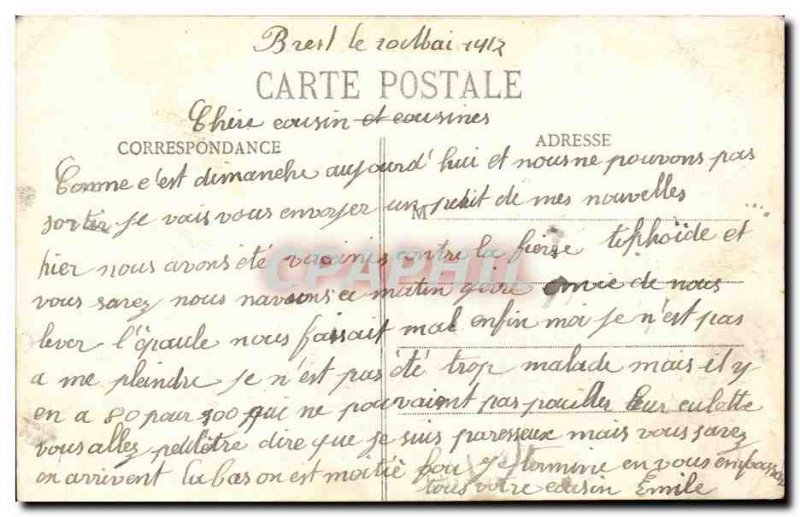 Brest le 20 Mai 1917
CARTE POSTALE
Chère cousin et cousines
CORRESPONDANCE
ADRESSE
Comme c'est dimanche aujourd'hui et nous ne pouvons pas
sortir je vais vous envoyer un petit de mes nouvelles
M
hier nous avons été vacinés contre la fievre tiphoïde et
CPAPHIL
vous savez nous navions ce matin gère envie de nous
lever l'épaule nous faisait mal enfin moi je n'est pas
a me pleindre je n'est pas été trop malade mais il y
en a 80 pour 100 qui ne pouvaient pas pas leur culotte
vous allez petitêtre dire que je suis paresseux mais vous savez
en arrivent la bas on est moitié fou je termine en vous embassan
tous votre cousin Emile